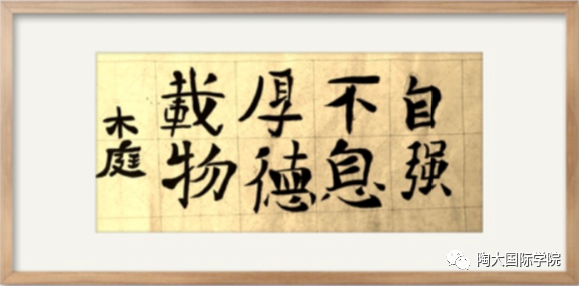 自强
不息
厚德
載物
木庭
陶大国际学院